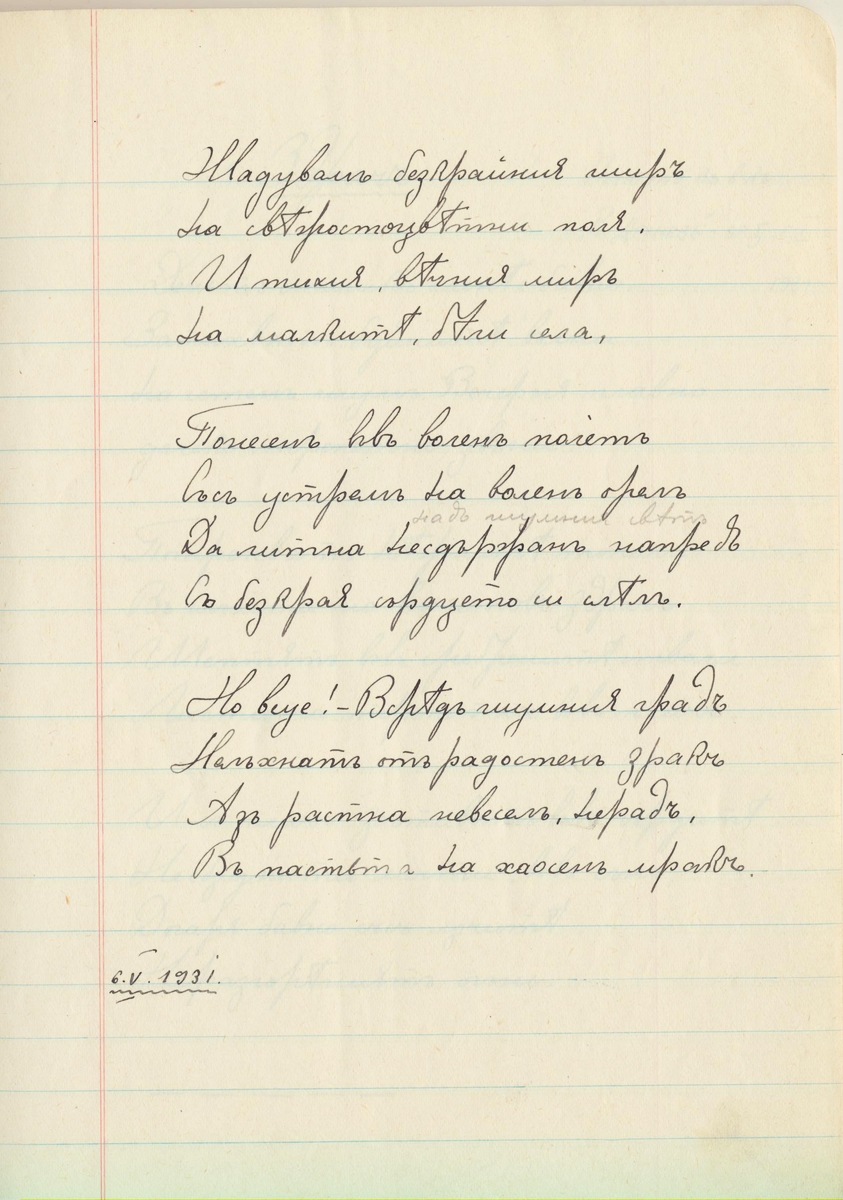 Жадувамъ безкрайния ширъ
на свѣжостоцвѣтни поля.
И тихия, вѣчния миръ
на малкитѣ, бѣли села,
Понесенъ въвъ воленъ полетъ
Съсъ устремъ на воленъ орелъ
надъ шумния свѣтъ
Да литна несдържанъ напредъ
Съ безкрая сърдцето си слѣлъ.
Но вуе! – Врѣдъ шумния градъ
Нелъхнатъ отъ радостенъ зракъ
Азъ растна невеселъ, нерадъ,
Въ пастьта на хаосенъ мракъ.
6.V.1931.